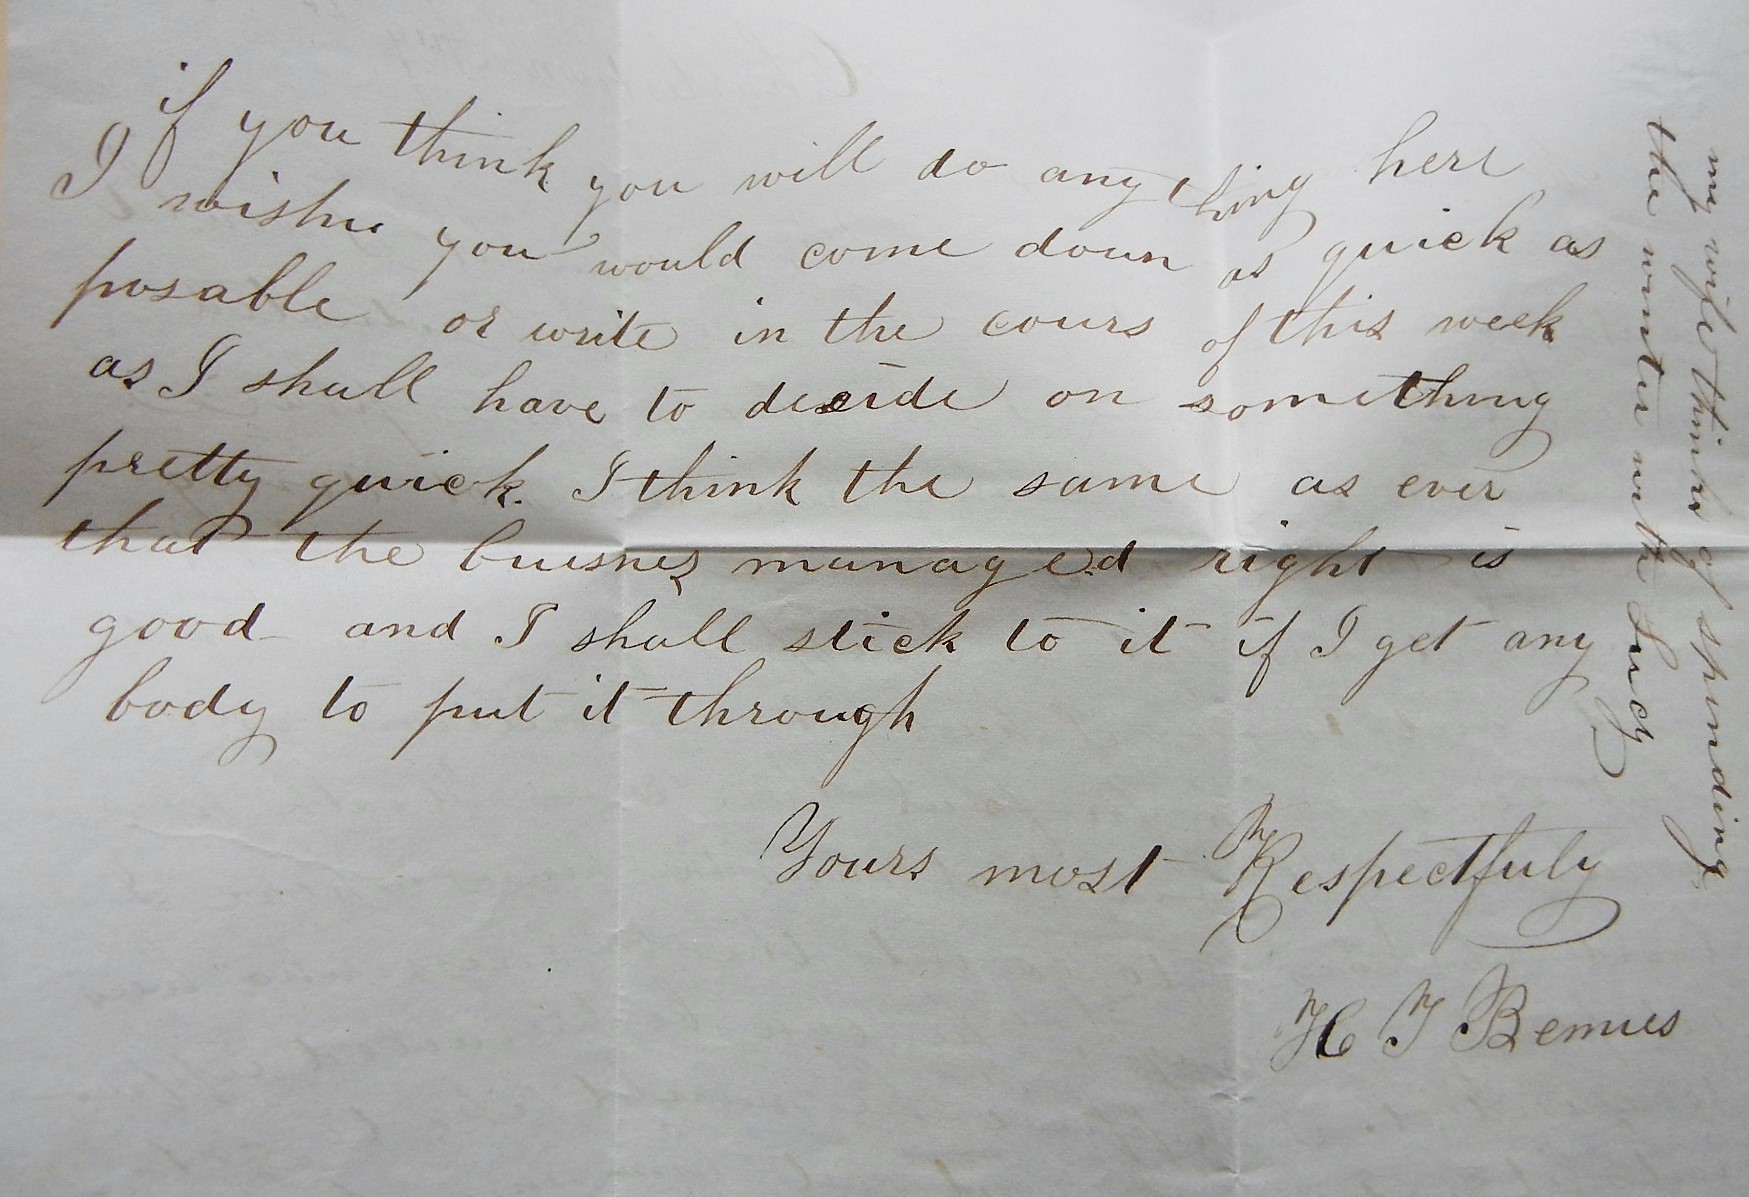 if you think you will do any thing here
I wishe you would come down as quick as
posable or write in the cours of this week
as I shall have to decide on something
pretty quick. I think the same as ever
that the buisnes managed right is
good and I shall stick to it if I get any
body to put it through
Yours most Respectfuly
H T Bemus
my wife thinks of spending
the winter with Lucy